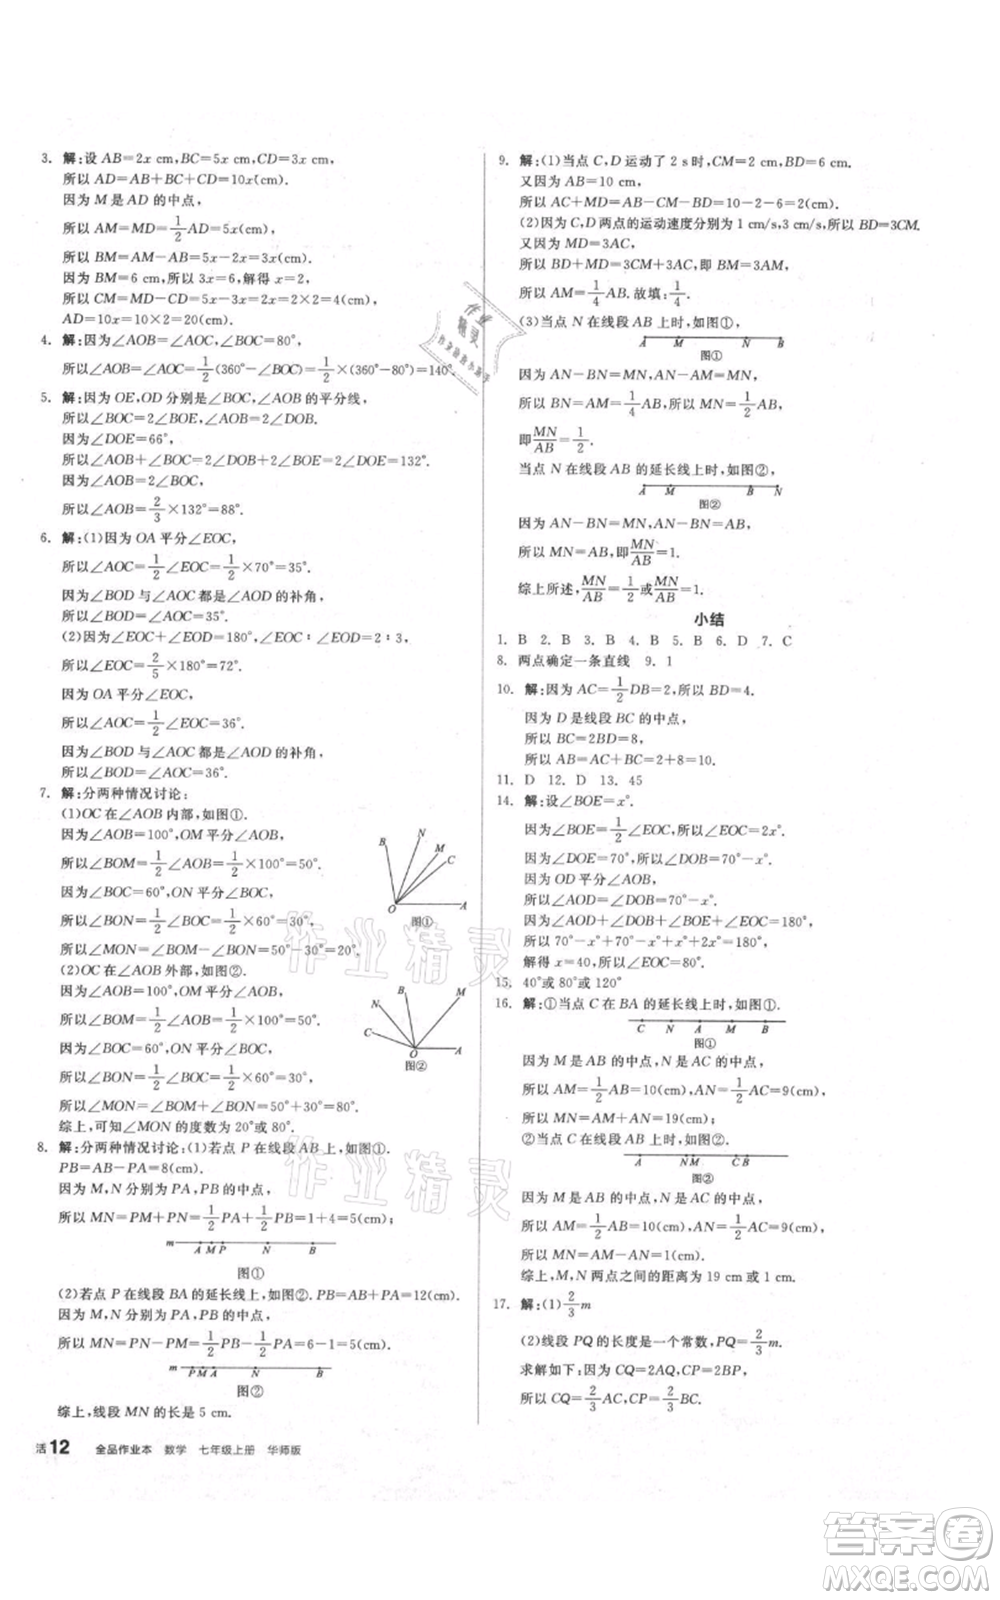 3. 解:设 AB=2x cm,BC=5x cm,CD=3x cm,
所以 AD=AB+BC+CD=10x(cm).
因为 M 是 AD 的中点,
所以 AM=MD=1/2AD=5x(cm),
所以 BM=AM-AB=5x-2x=3x(cm).
因为 BM=6 cm,所以 3x=6,解得 x=2.
所以 CM=MD-CD=5x-3x=2x=4(cm),
AD=10x=10×2=20(cm).
4. 解:因为∠AOB=∠AOC,∠BOC=80°,
所以∠AOC=1/2(360°-∠BOC)=1/2×(360°-80°)=140°.
5. 解:因为 OE,OD 分别是∠BOC,∠AOB 的平分线,
所以∠BOC=2∠BOE,∠AOB=2∠DOB.
因为∠DOE=66°,
所以∠AOB+∠BOC=2∠DOB+2∠BOE=2∠DOE=132°.
因为∠AOB=2∠BOC,
所以∠AOB=2/3×132°=88°.
6. 解:(1)因为 OA 平分∠EOC,
所以∠AOC=1/2∠EOC=1/2×70°=35°.
因为∠BOD 与∠AOC 都是∠AOD 的补角,
所以∠BOD=∠AOC=35°.
(2)因为∠EOC+∠EOD=180°,∠EOC∶∠EOD=2∶3,
所以∠EOC=2/5×180°=72°.
因为 OA 平分∠EOC,
所以∠AOC=1/2∠EOC=36°.
因为∠BOD 与∠AOC 都是∠AOD 的补角,
所以∠BOD=∠AOC=36°.
7. 解:分两种情况讨论:
(1)OC 在∠AOB 内部,如图①.
因为∠AOB=100°,OM 平分∠AOB,
所以∠BOM=1/2∠AOB=1/2×100°=50°.
因为∠BOC=60°,ON 平分∠BOC,
所以∠BON=1/2∠BOC=1/2×60°=30°,
所以∠MON=∠BOM-∠BON=50°-30°=20°.
B N M C O A
图①
(2)OC 在∠AOB 外部,如图②.
因为∠AOB=100°,OM 平分∠AOB,
所以∠BOM=1/2∠AOB=1/2×100°=50°.
因为∠BOC=60°,ON 平分∠BOC,
所以∠BON=1/2∠BOC=1/2×60°=30°,
所以∠MON=∠BOM+∠BON=50°+30°=80°.
综上,可知∠MON 的度数为 20°或 80°.
N B M C O A
图②
8. 解:分两种情况讨论:(1)若点 P 在线段 AB 上,如图①.
PB=AB-PA=8(cm).
因为 M,N 分别为 PA,PB 的中点,
所以 MN=PM+PN=1/2PA+1/2PB=1+4=5(cm);
m A M P N B
图①
(2)若点 P 在线段 BA 的延长线上,如图②.PB=AB+PA=12(cm).
因为 M,N 分别为 PA,PB 的中点,
所以 MN=PN-PM=1/2PB-1/2PA=6-1=5(cm).
m P M A N B
图②
综上,线段 MN 的长是 5 cm.
活12 全品作业本 数学 七年级上册 华师版
9. 解:(1)当点 C,D 运动了 2 s 时,CM=2 cm,BD=6 cm.
又因为 AB=10 cm,
所以 AC+MD=AB-CM-BD=10-2-6=2(cm).
(2)因为 C,D 两点的运动速度分别为 1 cm/s,3 cm/s,所以 BD=3CM.
又因为 MD=3AC,
所以 BD+MD=3CM+3AC,即 BM=3AM,
所以 AM=1/4AB. 故填:1/4.
(3)当点 N 在线段 AB 上时,如图①,
A M N B
图①
因为 AN-BN=MN,AN-AM=MN,
所以 BN=AM=1/4AB,所以 MN=1/2AB,
即MN/AB=1/2.
当点 N 在线段 AB 的延长线上时,如图②,
A M B N
图②
因为 AN-BN=MN,AN-BN=AB,
所以 MN=AB,即MN/AB=1.
综上所述,MN/AB=1/2或MN/AB=1.
小结
1. B 2. B 3. B 4. B 5. B 6. D 7. C
8. 两点确定一条直线 9. 1
10. 解:因为 AC=1/2DB=2,所以 BD=4.
因为 D 是线段 BC 的中点,
所以 BC=2BD=8,
所以 AB=AC+BC=2+8=10.
11. D 12. D 13. 45
14. 解:设∠BOE=x°.
因为∠BOE=1/2∠EOC,所以∠EOC=2x°.
因为∠DOE=70°,所以∠BOD=70°-x°.
因为 OD 平分∠AOB,
所以∠AOD=∠BOD=70°-x°.
因为∠AOD+∠DOB+∠BOE+∠EOC=180°,
所以 70°-x°+70°-x°+x°+2x°=180°,
解得 x=40,所以∠EOC=80°.
15. 40°或 80°或 120°
16. 解:①当点 C 在 BA 的延长线上时,如图①.
C N A M B
图①
因为 M 是 AB 的中点,N 是 AC 的中点,
所以 AM=1/2AB=10(cm),AN=1/2AC=9(cm),
所以 MN=AM+AN=19(cm);
②当点 C 在线段 AB 上时,如图②.
A NM C B
图②
因为 M 是 AB 的中点,N 是 AC 的中点,
所以 AM=1/2AB=10(cm),AN=1/2AC=9(cm),
所以 MN=AM-AN=1(cm).
综上,M,N 两点之间的距离为 19 cm 或 1 cm.
17. 解:(1)2/3m
(2)线段 PQ 的长度是一个常数,PQ=2/3m.
求解如下:因为 CQ=2AQ,CP=2BP,
所以 CQ=2/3AC,CP=2/3BC.
作业精灵
作业精灵
答案卷
MXQE.COM